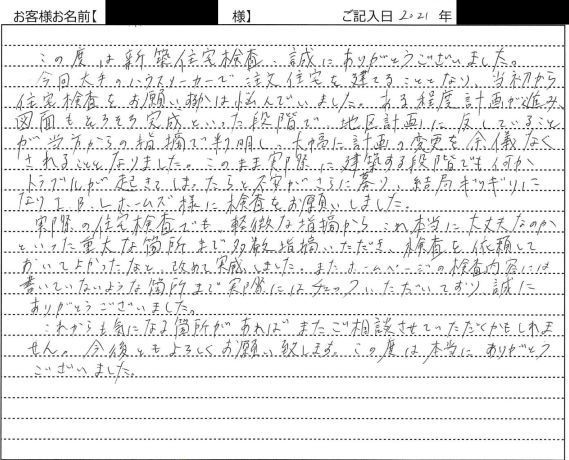 お客様お名前【 様】 ご記入日 2021 年
この度は新築住宅検査、誠にありがとうございました。
今回大手のハウスメーカーで注文住宅を建てることとなり、当初から
住宅検査をお願い掛は悩んでいました。ある程度計画が進み、
図面もそろそろ完成といった段階で、地区計画に反していること
が当方からの指摘で判明し、大幅に計画の変更を余儀なく
されることとなりました。このまま実際に建築する段階でも何か
トラブルが起きてしまったらと不安がさらに募り、結局ギリギリに
なりI.B.Lホームズ様に検査をお願いしました。
実際の住宅検査でも、軽微な指摘から、これ本当に大丈夫なのか
といった重大な箇所まで多数指摘いただき、検査を依頼して
おいてよかったなと、改めて実感しました。またホームページの検査内容には
書いていないような箇所まで実際にはチェックいただいており、誠に
ありがとうございました。
これからも気になる箇所があればまたご相談させていただくかもしれま
せん。今後ともよろしくお願い致します。この度は本当にありがとう
ございました。